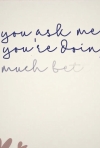 you ask me
you're doin
much bet